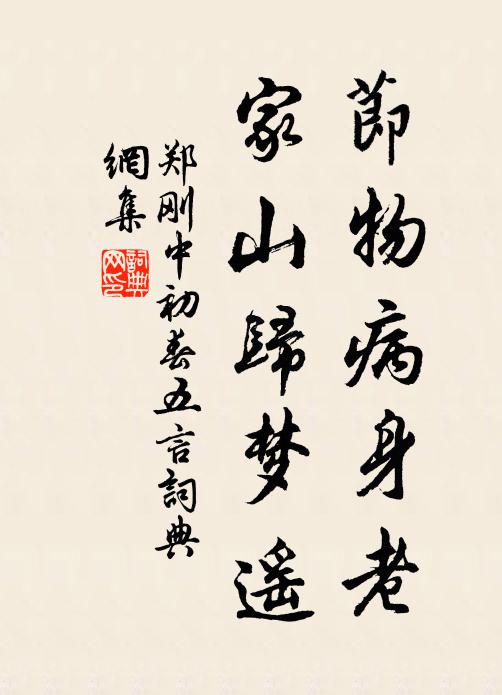 莭物病身老
家山歸梦遥
郑刚中初春五言詞典
網集
詞典
网印